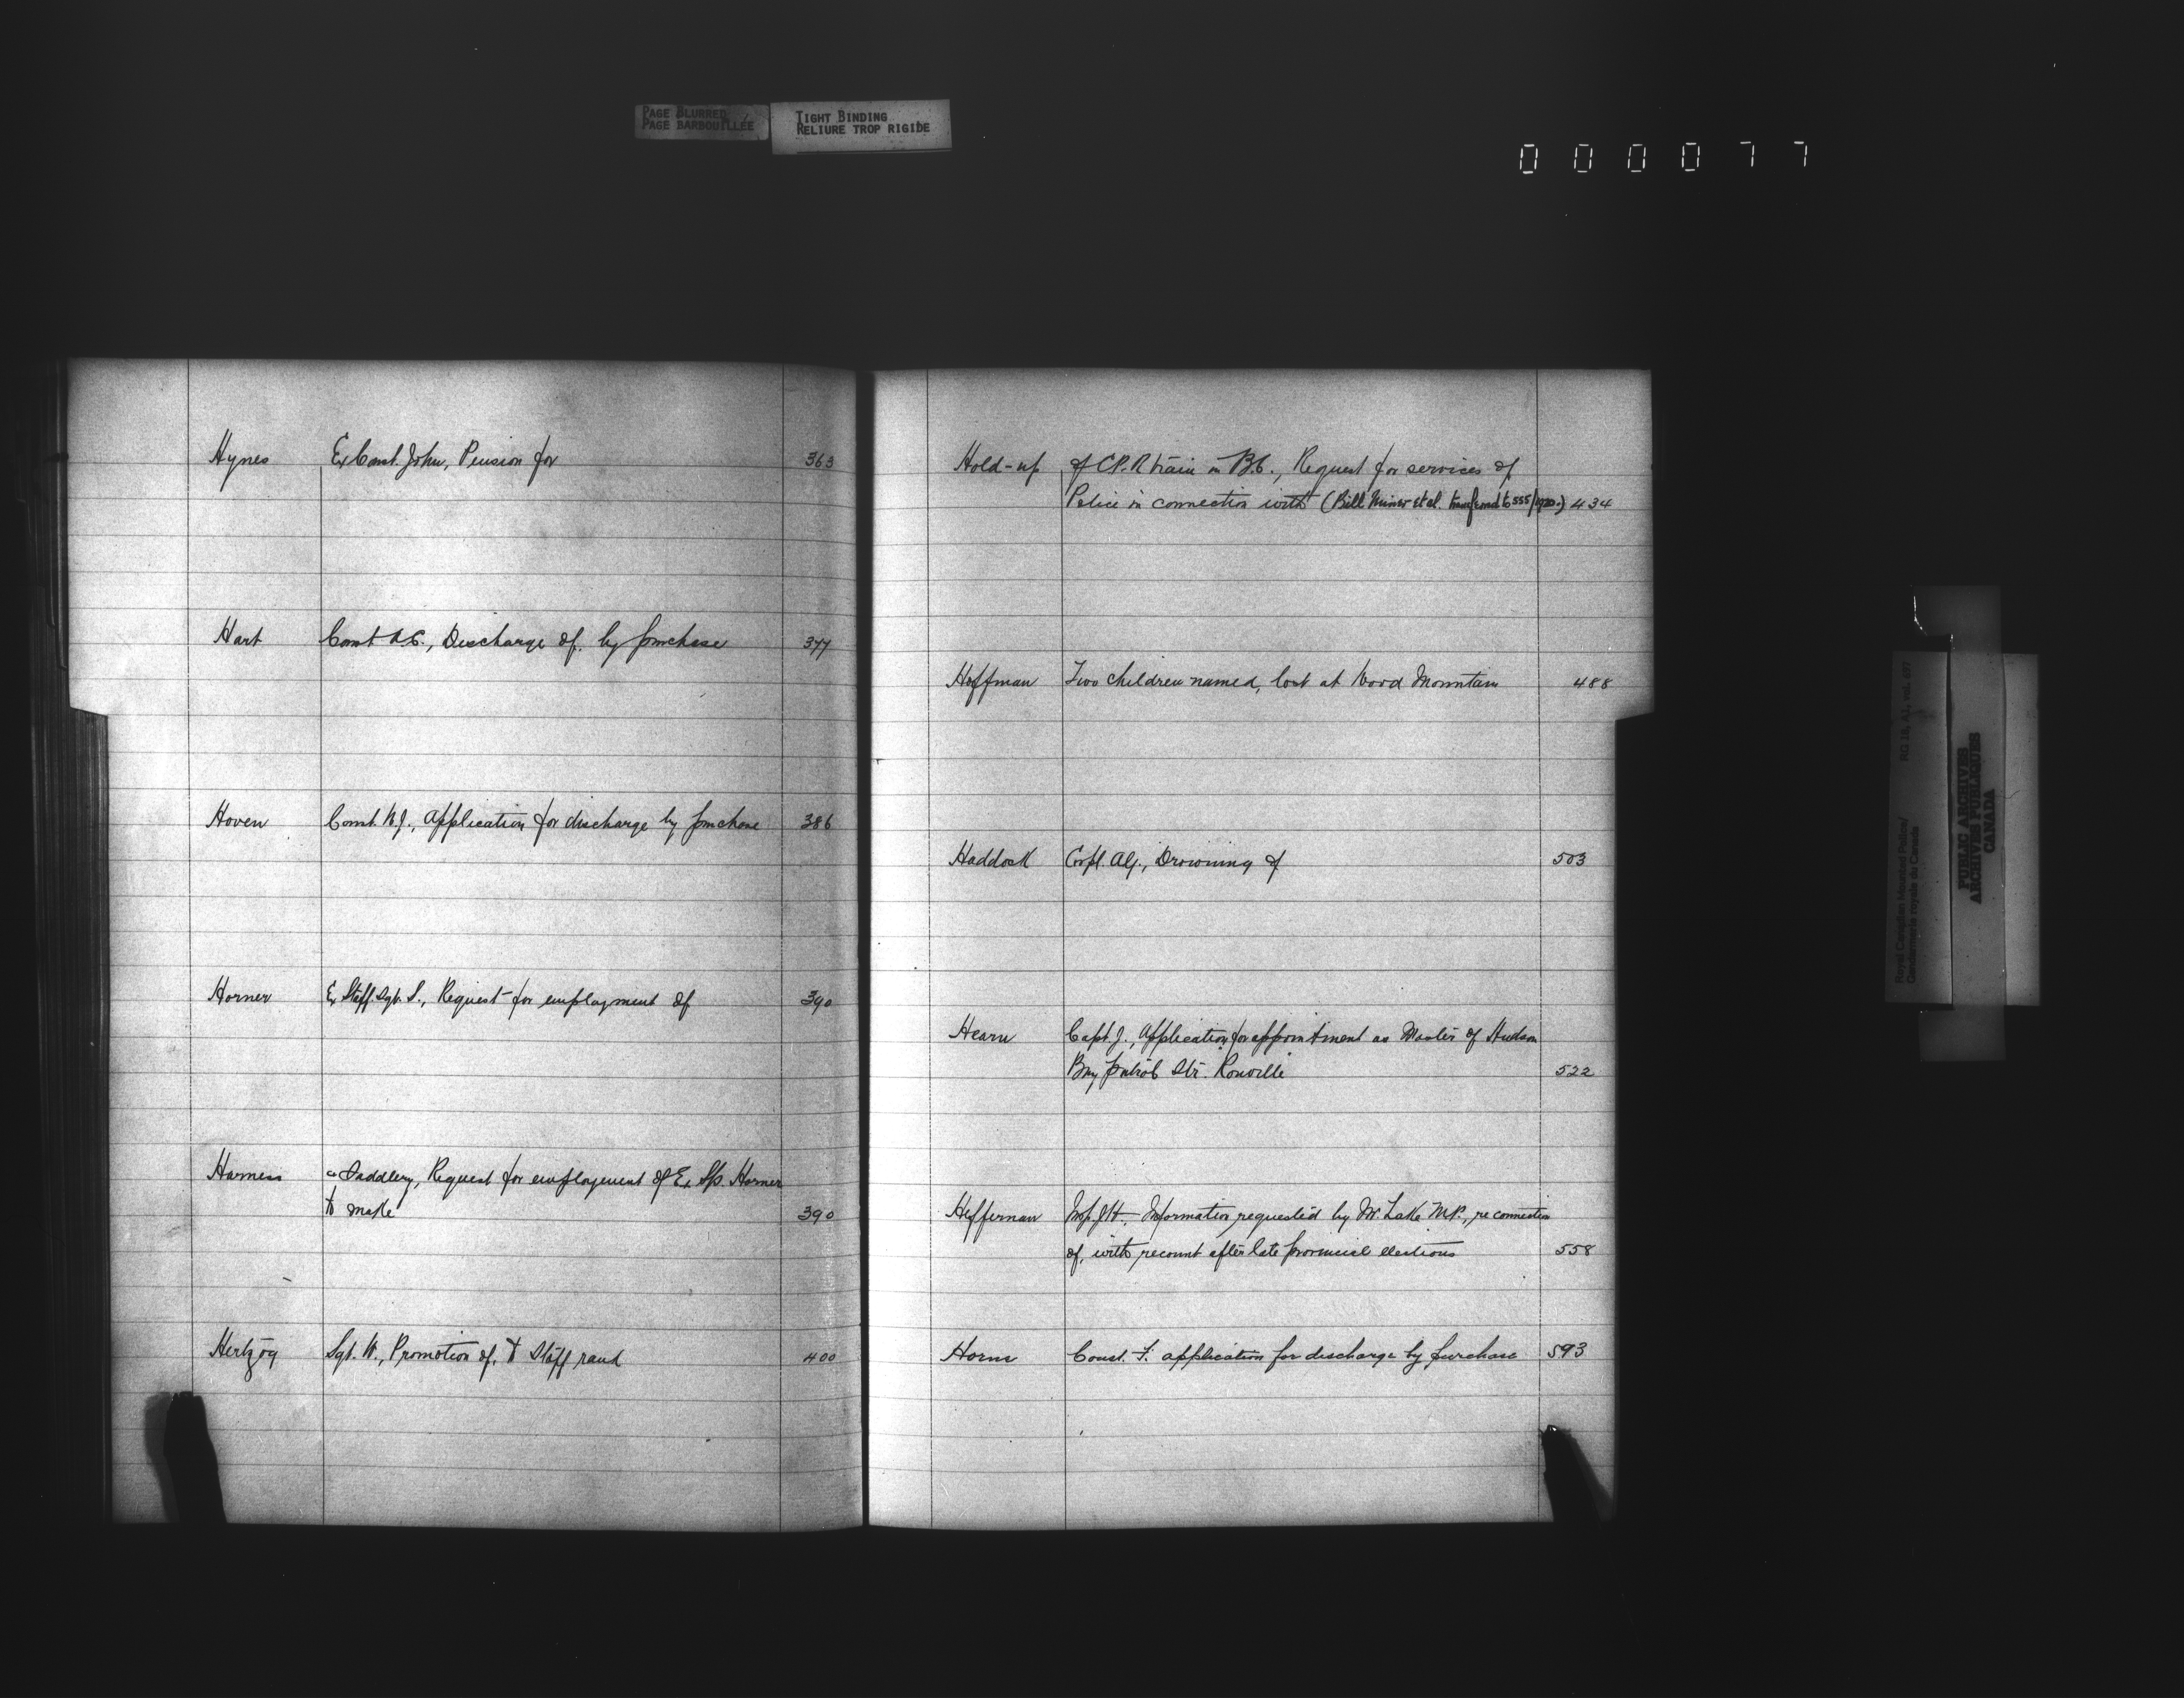 PAGE BLURRED
PAGE BARBOUILLÉE
TIGHT BINDING
RELIURE TROP RIGIDE
000077
Hynes Ex Const. John, Pension for 363
Hart Const A.C., Discharge of, by purchase 377
Hoven Const. W.J., Application for discharge by purchase 386
Horner Ex Staff Sgt. S., Request for employment of 390
Harness & Saddlery, Request for employment of Ex S/S. Horner
to make 390
Hertzog Sgt. W., Promotion of, to Staff rank 400
Hold-up of C.P.R train in B.C., Request for services of
Police in connection with (Bill Miner et al. transferred to 555/1920.) 434
Hoffman Two children named, lost at Wood Mountain 488
Haddock Corpl. Alf., Drowning of 503
Hearn Capt J., Application for appointment as Master of Hudson
Bay patrol Str. Rouville 522
Heffernan Insp. J.H. Information requested by Mr. Lake M.P., re connection
of, with recount after late provincial elections 558
Horne Const. F. application for discharge by purchase 593
Royal Canadian Mounted Police/ RG 18, A1, vol.
Gendarmerie royale du Canada
PUBLIC ARCHIVES
ARCHIVES PUBLIQUES
CANADA